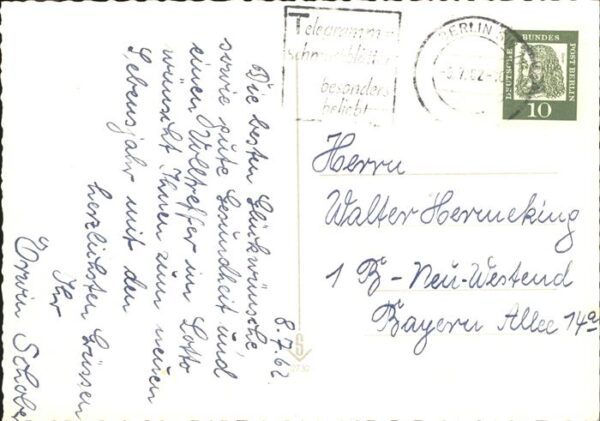 8.7.62.
Die besten Glückwünsche
sowie gute Gesundheit und
einen Volltreffer im Lotto
wünscht Ihnen zum neuen
Lebensjahr mit den
herzlichsten Grüssen
Ihr
Erwin Schober
Telegramme
Schmuckblätter
besonders
beliebt
BERLIN
DEUTSCHE BUNDES POST BERLIN
10
Herrn
Walter Hernecking
1 B-Neu-Westend
Bayern Allee 14a